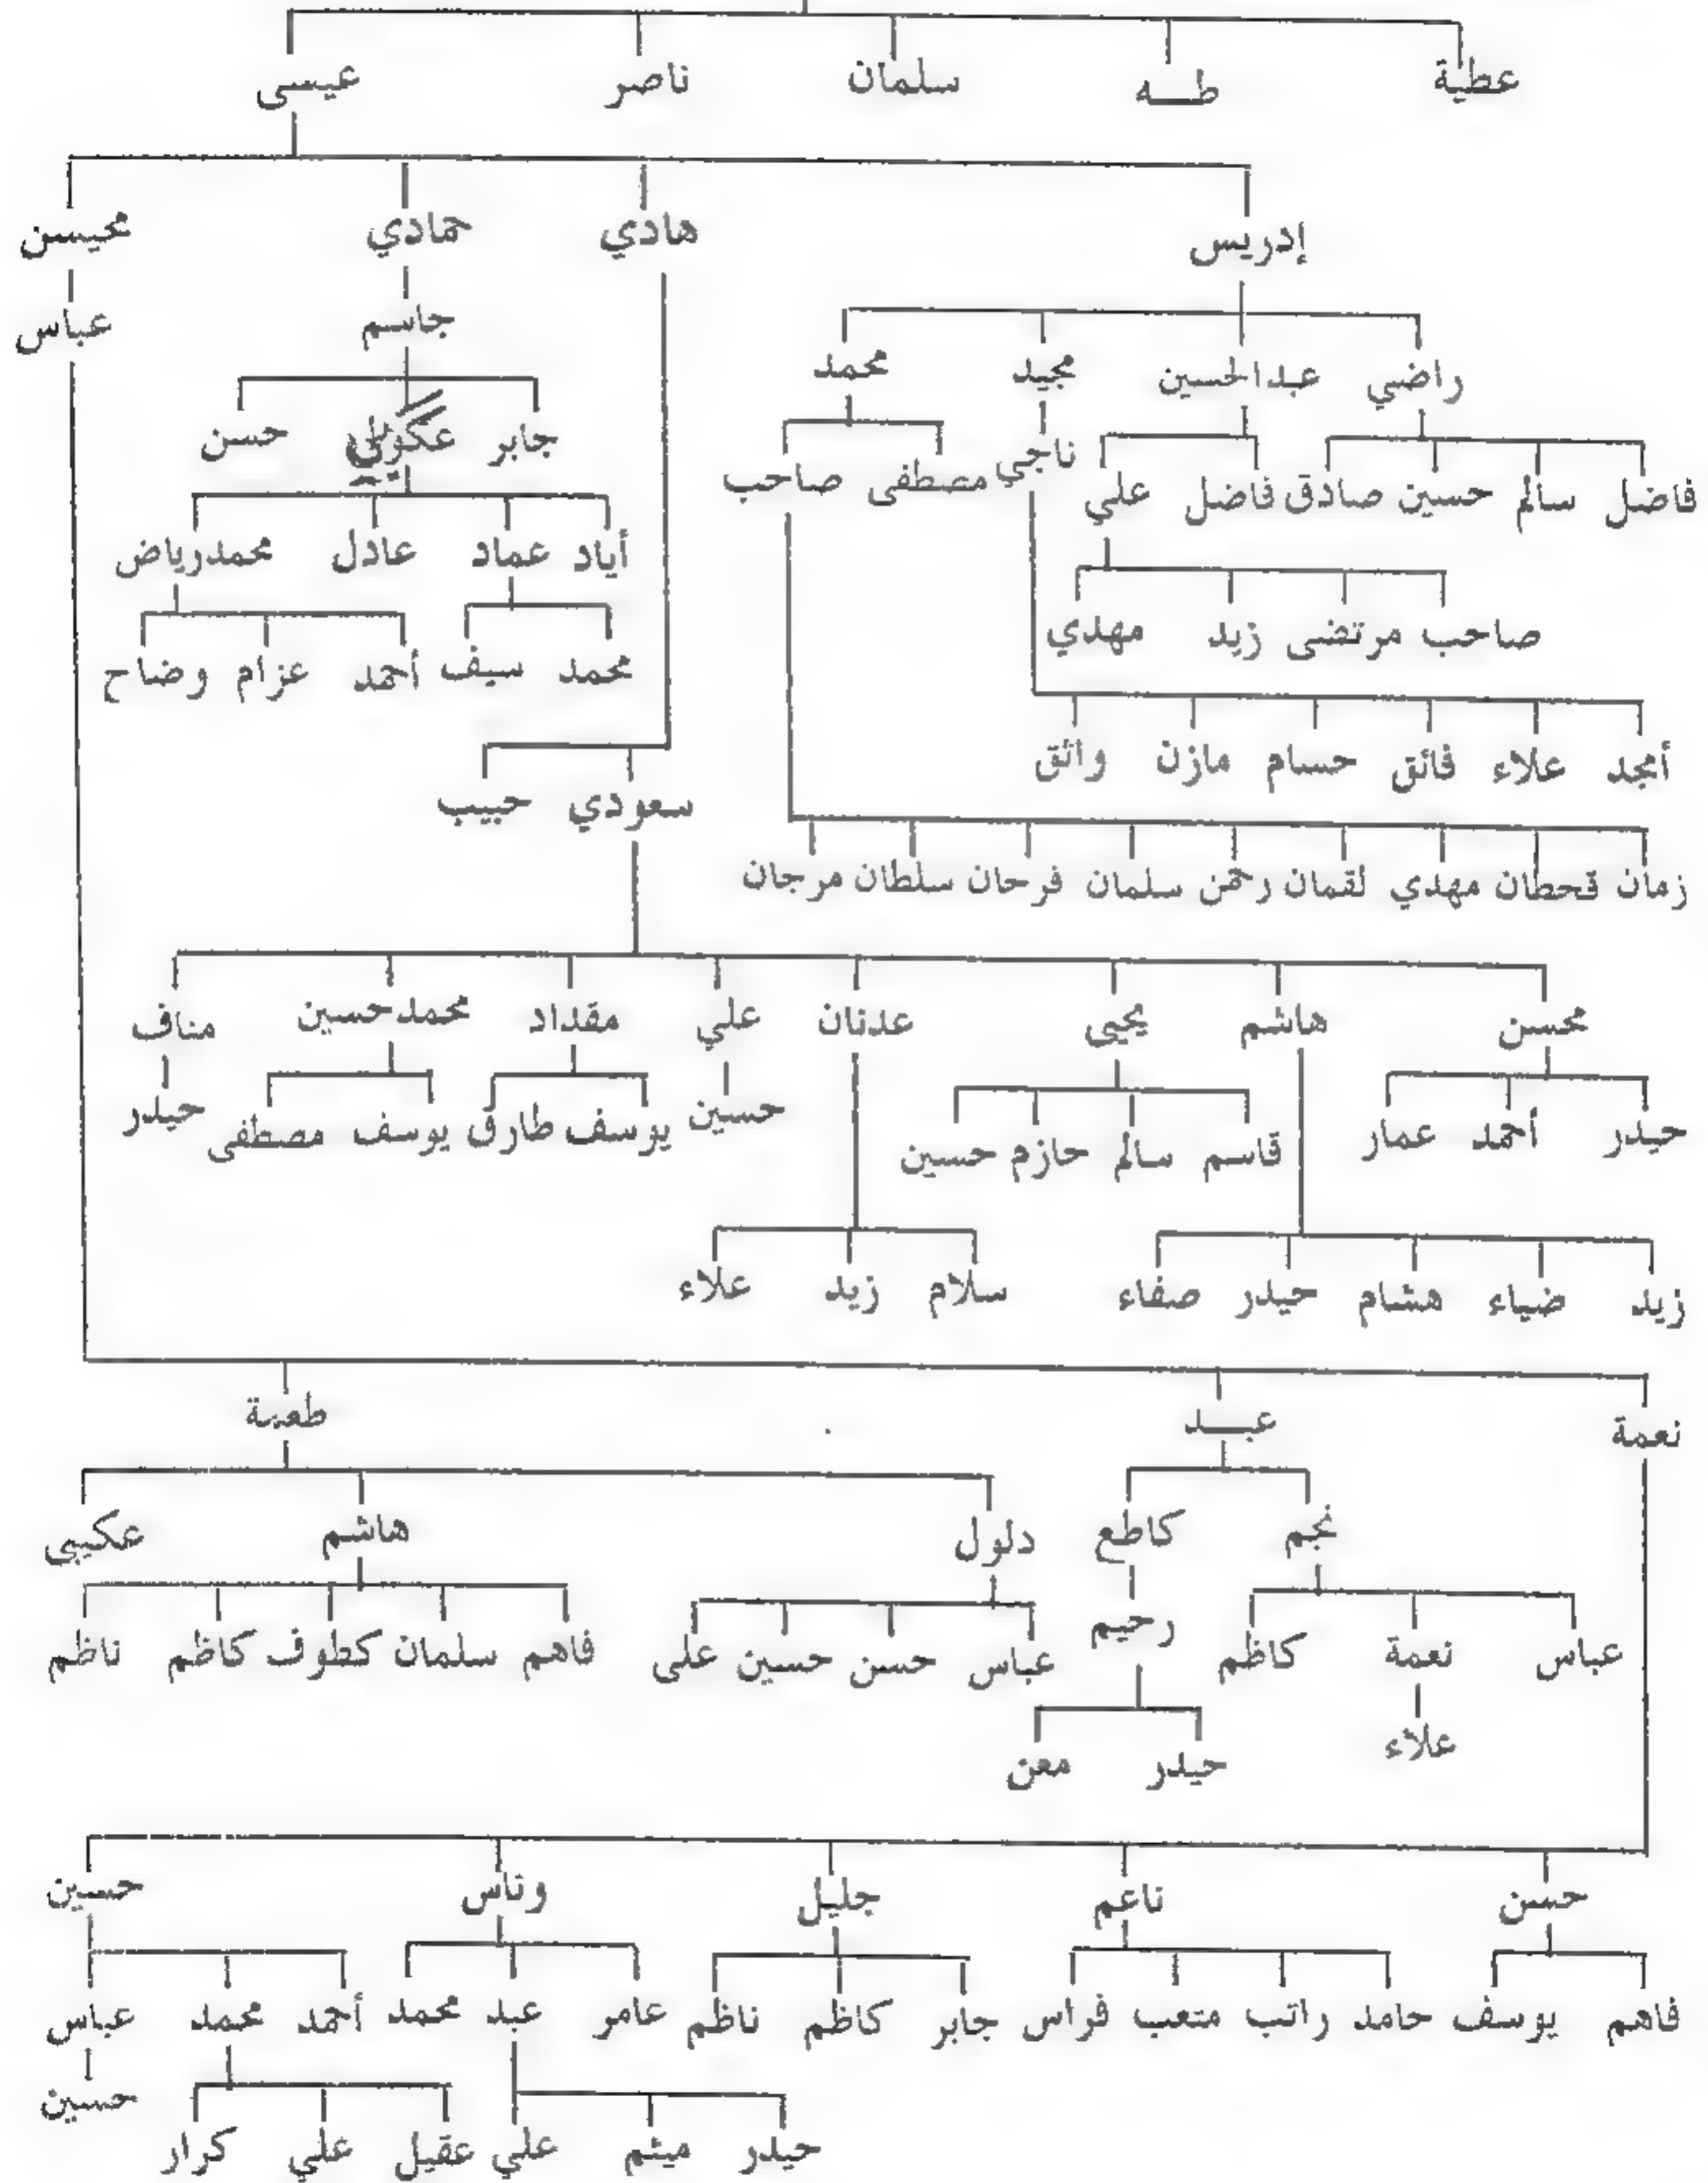 عطية طــه سلمان ناصر عيسى
إدريس هادي حمادي محيسن
جاسم عباس
راضي عبدالحسين مجيد محمد
جابر حسن
فاضل سالم حسين صادق فاضل علي ناجي مصطفى صاحب
أياد عماد عادل محمدرياض
صاحب مرتضى زيد مهدي
محمد سيف أحمد عزام وضاح
أمجد علاء فائق حسام مازن واثق
سعودي حبيب
زمان قحطان مهدي لقمان رحمن سلمان فرحان سلطان مرجان
محسن هاشم يحيى عدنان علي مقداد محمدحسين مناف
حيدر أحمد عمار قاسم سالم حازم حسين حسين يوسف طارق يوسف مصطفى حيدر
زيد ضياء هشام حيدر صفاء سلام زيد علاء
نعمة عبــد طعمة
نجم كاطع دلول هاشم عكيبي
عباس نعمة كاظم رحيم عباس حسن حسين علي فاهم سلمان كطوف كاظم ناظم
علاء
حيدر معن
حسن ناعم جليل وناس حسين
فاهم يوسف حامد راتب متعب فراس جابر كاظم ناظم عامر عبد محمد أحمد محمد عباس
حسين
حيدر ميثم علي عقيل علي كرار